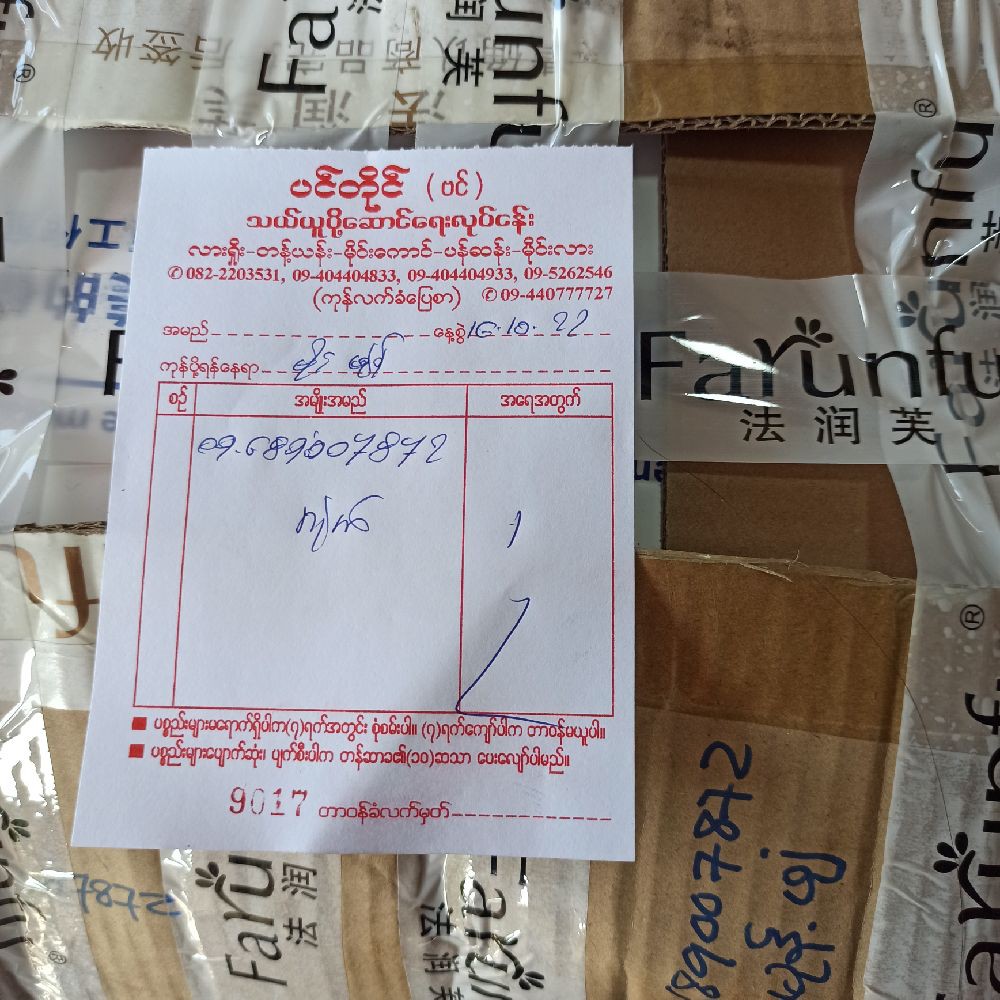 ပင်တိုင် (ဗင်)
သယ်ယူပို့ဆောင်ရေးလုပ်ငန်း
လားရှိုး-တန့်ယန်း-မိုင်းကောင်-ပန်ဆန်း-မိုင်းလား
✆ 082-2203531, 09-404404833, 09-404404933, 09-5262546
(ကုန်လက်ခံပြေစာ) ✆ 09-440777727
အမည် နေ့စွဲ 16.10.22
ကုန်ပို့ရန်နေရာ
စဉ် အမျိုးအမည် အရေအတွက်
09.689007872
1
■ ပစ္စည်းများမရောက်ရှိပါက(၇)ရက်အတွင်း စုံစမ်းပါ။ (၇)ရက်ကျော်ပါက တာဝန်မယူပါ။
■ ပစ္စည်းများပျောက်ဆုံး၊ ပျက်စီးပါက တန်ဆာခ၏(၁၀)ဆသာ ပေးလျော်ပါမည်။
9017 တာဝန်ခံလက်မှတ်
Farunfu
法润芙
89007872
Faru
法润
后签收